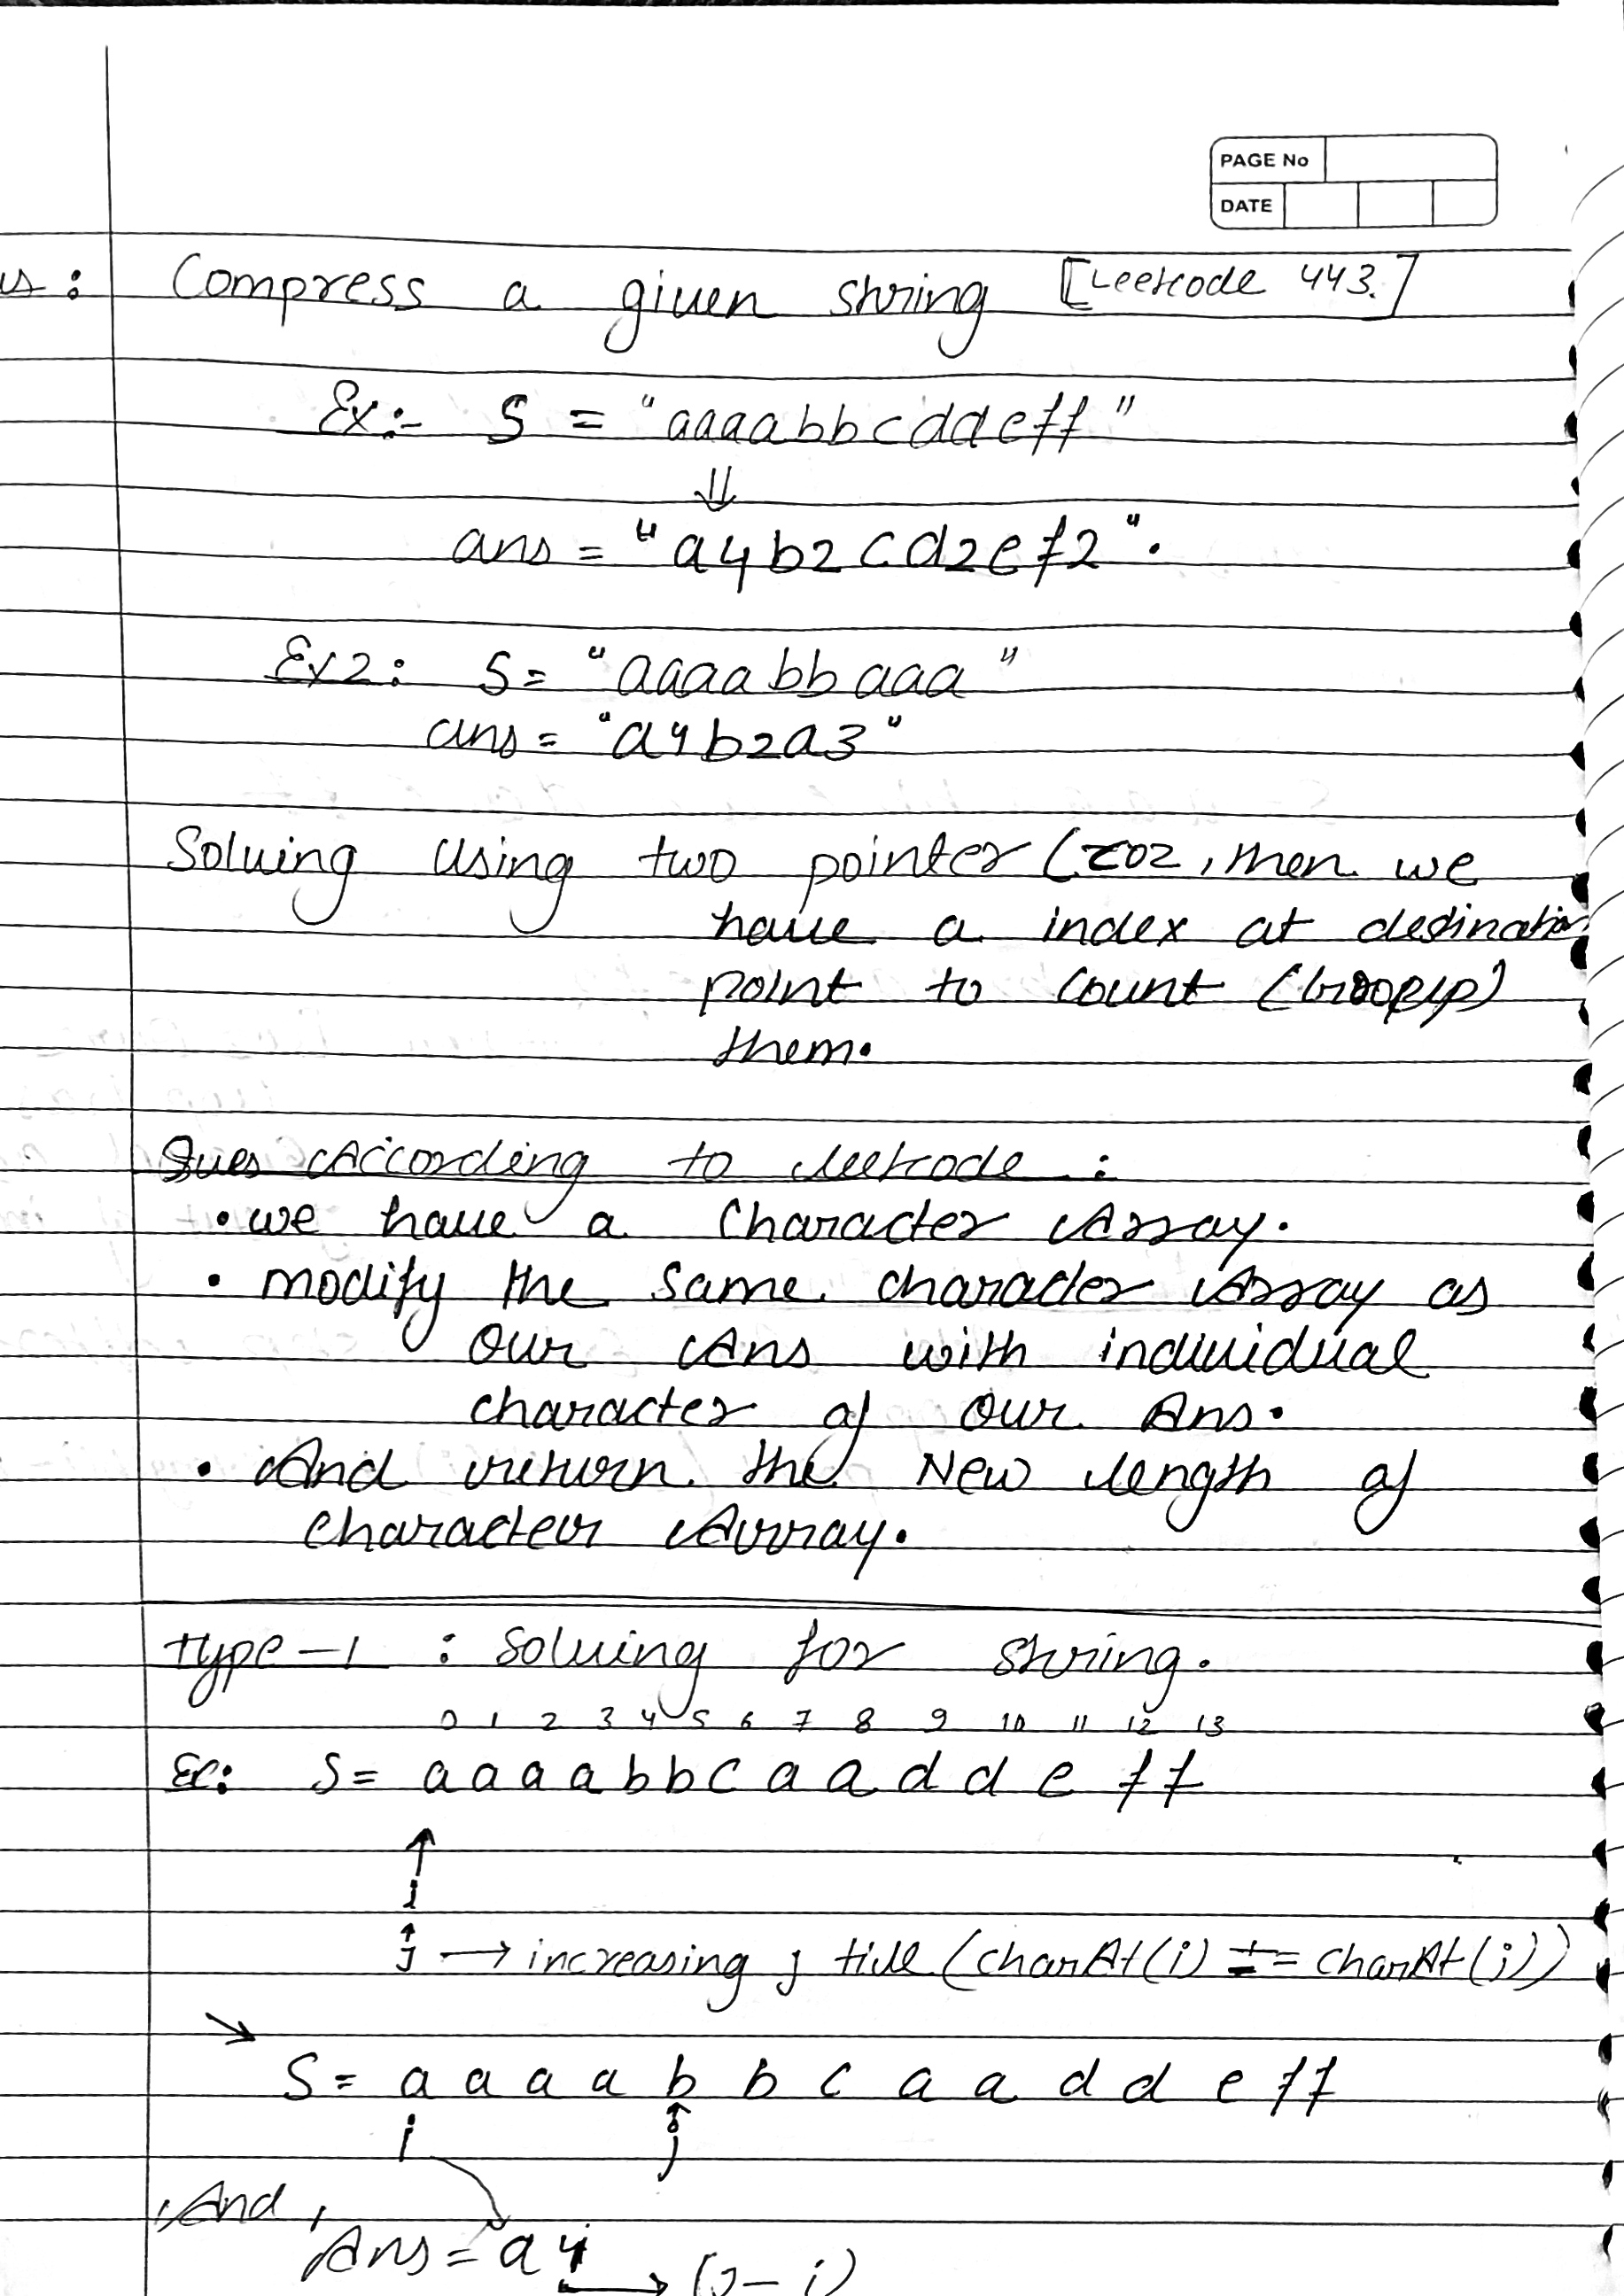 PAGE No
DATE
us: Compress a given string [Leetcode 443.]
Ex:- S = "aaaabbcddeff"
⇓
ans = "a4b2cd2ef2".
Ex2: S= "aaaabbaaa"
ans= "a4b2a3"
Solving using two pointer ( , then we
have a index at destination
point to count
them.
Ques According to leetcode :
• we have a Character Array.
• modify the same character Array as
our Ans with individual
character of our Ans.
• And return the New length of
character Array.
type-1 : Solving for string.
0 1 2 3 4 5 6 7 8 9 10 11 12 13
Ex: S= a a a a b b c a a d d e f f
↑
i
↑
j → increasing j till (charAt(i) == charAt(j))
→
S= a a a a b b c a a d d e f f
i ↑
j
, And,
Ans = a 4
→ (j-i)